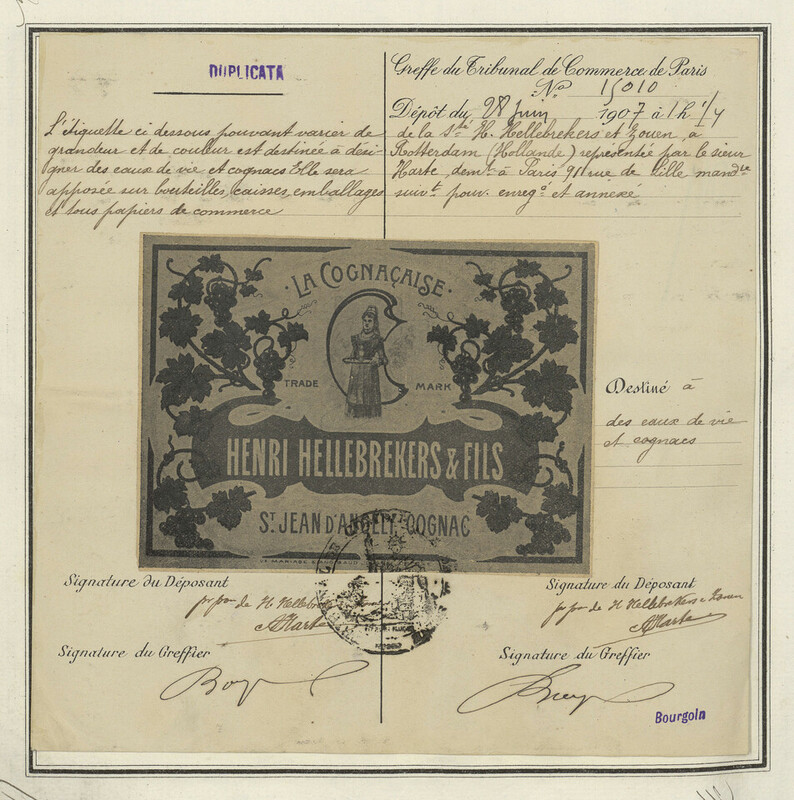 DUPLICATA
L'Etiquette ci dessous pouvant varier de
grandeur et de couleur est destinée à dési-
gner des eaux de vie et cognacs Elle sera
apposée sur bouteilles, caisses, emballages
et tous papiers de commerce
Greffe du Tribunal de Commerce de Paris
No 15010
Dépôt du 28 Juin 1907 à 1h 1/4
de la Sté H. Hellebrekers et Zonen, à
Rotterdam (Hollande) représentée par le sieur
Harte, demt à Paris 91 rue de Lille mandre
suivt pouv. enregé et annexé
LA COGNAÇAISE
TRADE MARK
HENRI HELLEBREKERS & FILS
ST JEAN D'ANGELY-COGNAC
Destiné à
des eaux de vie
et cognacs
Signature du Déposant
pr pon de H. Hellebrek
AHarte
Signature du Greffier
Signature du Déposant
pr pon de H Hellebrekers & Zonen
AHarte
Signature du Greffier
Bourgoin